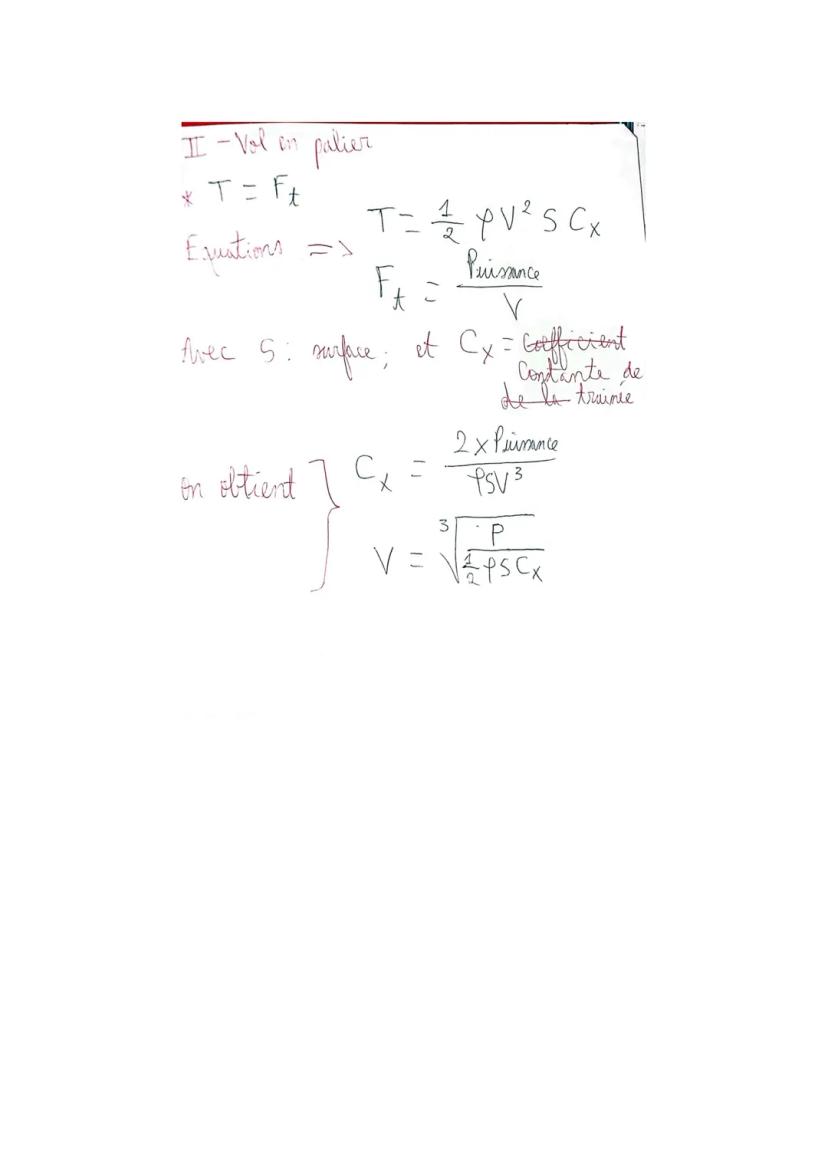 II - Vol en palier
* T = Ft
Equations => T = 1/2 ρV² S Cx
Ft = Puissance / V
Avec S : surface ; et Cx = Coefficient
Constante de
de la trainée
on obtient } Cx = 2 x Puissance / ρSV³
V = ³√(P / (1/2 ρSCx))